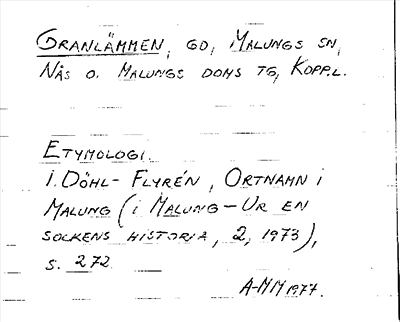 GRANLÄMMEN, GD, MALUNGS SN,
NÅS O. MALUNGS DOMS TG, KOPP.L.
ETYMOLOGI.
I. DÖHL-FLYRÉN, ORTNAMN I
MALUNG (I MALUNG – UR EN
SOCKENS HISTORIA, 2, 1973),
S. 272.
A-MM 1977.